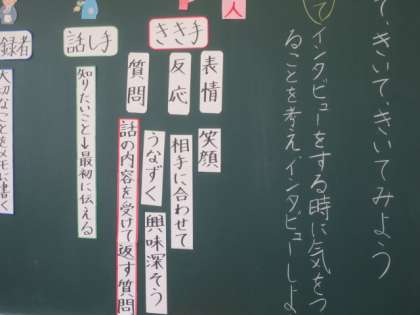 て、きいて、きいてみよう
て
インタビューをする時に気をつ
ることを考え、インタビューしよ
人
きき手
表情
笑顔
反応
相手に合わせて
うなずく
興味深そう
質問
話の内容を受けて返す質問
話し手
知りたいこと→最初に伝える
録者
大切なことをメモに書く